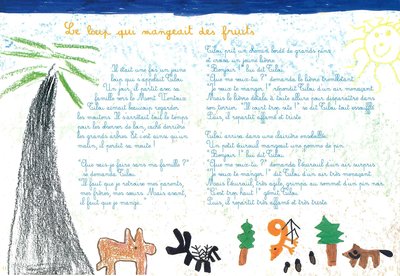 Le loup qui mangeait des fruits
Il était une fois un jeune
loup qui s'appelait Tilou.
Un jour, il partit avec sa
famille vers le Mont Ventoux.
Tilou aimait beaucoup regarder
les moutons. Il s'arrêtait tout le temps
pour les observer de loin, caché derrière
les grands arbres. Et c'est ainsi qu'un
matin, il perdit sa meute !
"Que vais-je faire sans ma famille ?"
se demanda Tilou.
"Il faut que je retrouve mes parents,
mes frères, mes sœurs. Mais avant,
il faut que je mange.
Tilou prit un chemin bordé de grands pins
et croisa un jeune lièvre.
"Bonjour !" lui dit Tilou.
"Que me veux-tu ?" demanda le lièvre tremblotant.
"Je veux te manger !" répondit Tilou d'un air menaçant.
Mais le lièvre détala à toute allure pour disparaître dans
son terrier. "Il court trop vite !" se dit Tilou tout essoufflé.
Puis, il repartit affamé et triste.
Tilou arriva dans une clairière ensoleillée.
Un petit écureuil mangeait une pomme de pin.
"Bonjour !" lui dit Tilou.
"Que me veux-tu ?" demanda l'écureuil d'un air surpris.
"Je veux te manger !" dit Tilou d'un air très menaçant.
Mais l'écureuil, très agile, grimpa au sommet d'un pin noir.
"C'est trop haut !" gémit Tilou.
Puis, il repartit très affamé et très triste.